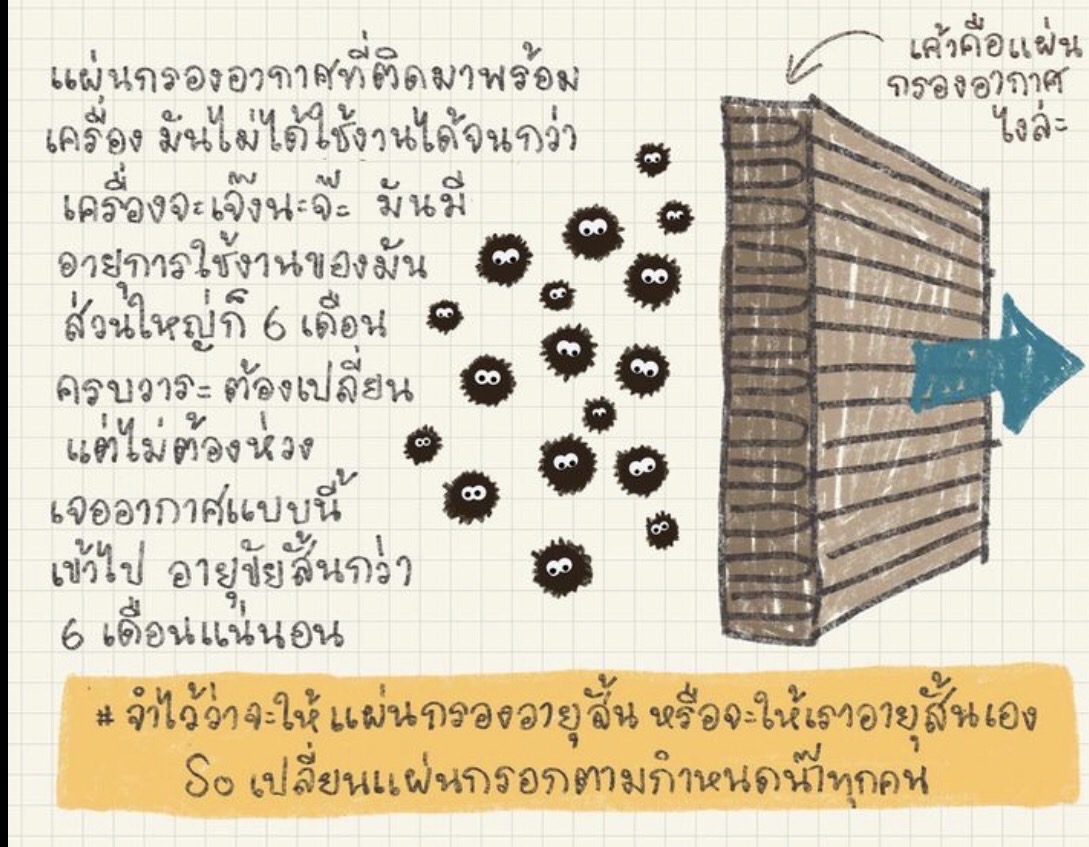 แผ่นกรองอากาศที่ติดมาพร้อม
เครื่อง มันไม่ได้ใช้งานได้จนกว่า
เครื่องจะเจ๊งนะจ๊ะ มันมี
อายุการใช้งานของมัน
ส่วนใหญ่ก็ 6 เดือน
ครบวาระ ต้องเปลี่ยน
แต่ไม่ต้องห่วง
เจออากาศแบบนี้
เข้าไป อายุขัยสั้นกว่า
6 เดือนแน่นอน
เค้าคือแผ่น
กรองอากาศ
ไงล่ะ
# จำไว้ว่าจะให้ แผ่นกรองอายุสั้น หรือจะให้เราอายุสั้นเอง
So เปลี่ยนแผ่นกรอกตามกำหนดน๊าทุกคน